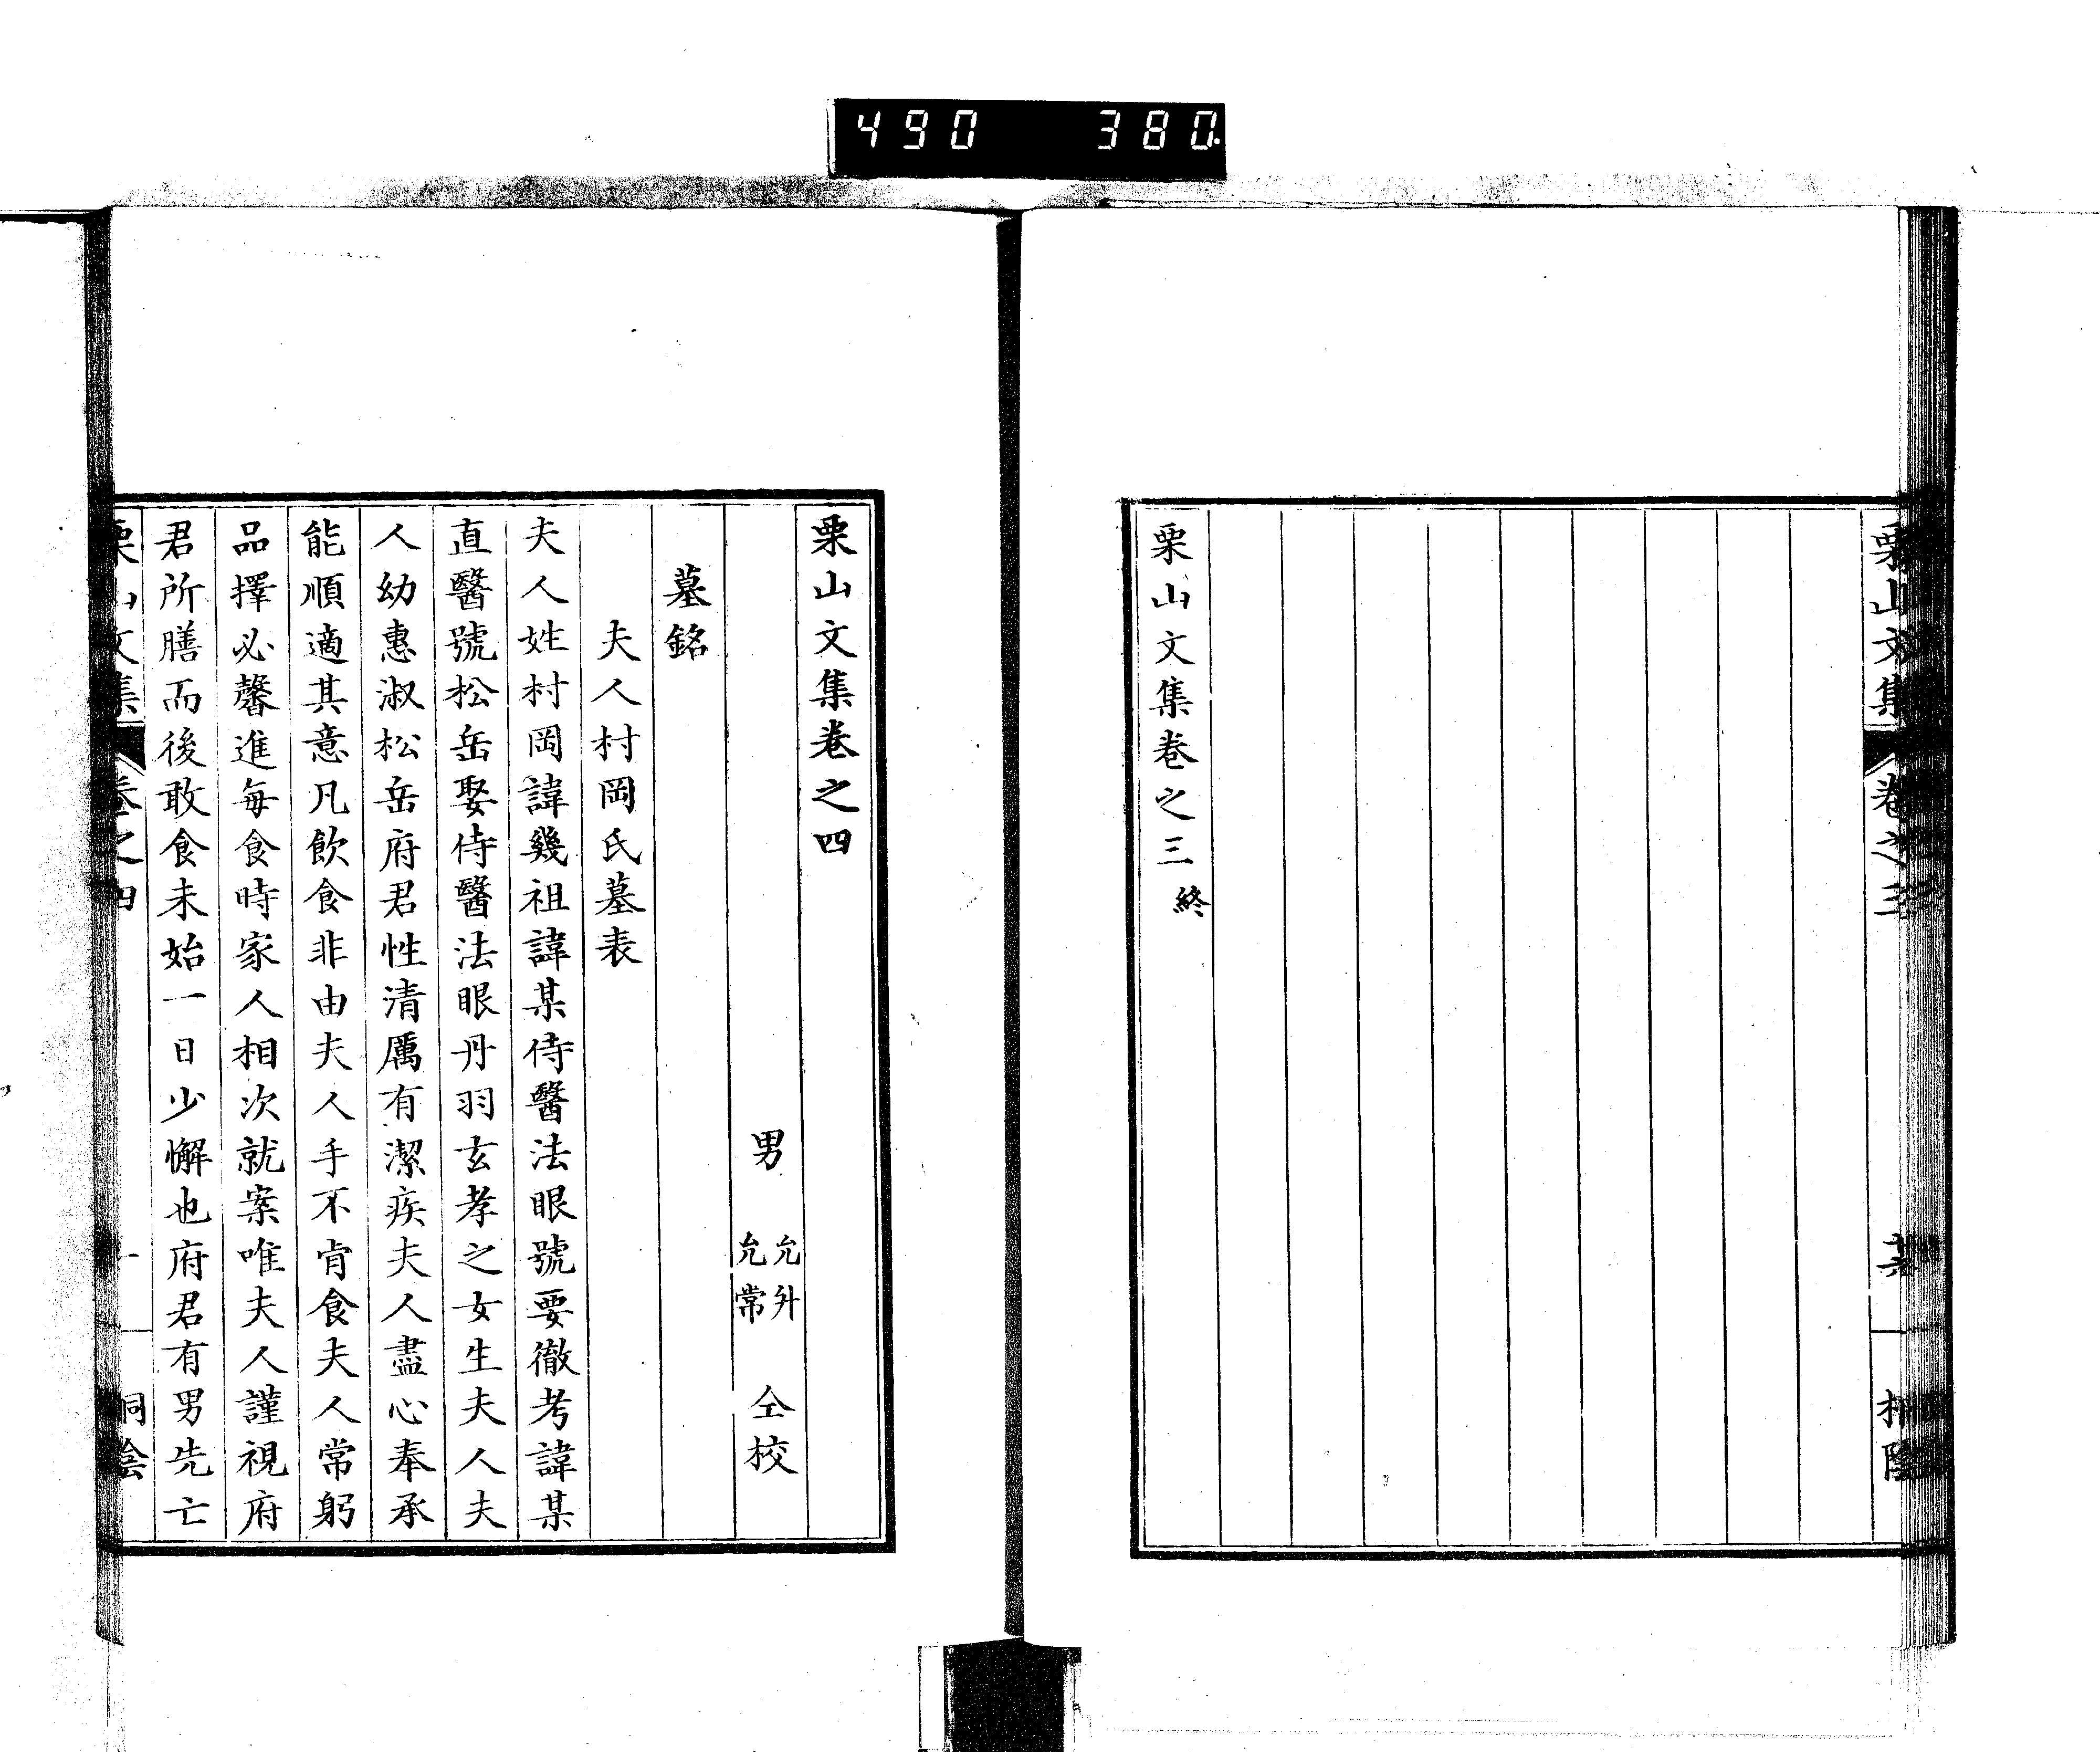 490 380
栗山文集
卷之三
栗山文集卷之三 終
栗山文集卷之四
男 允升 允常 仝校
墓銘
夫人村岡氏墓表
夫人姓村岡諱幾祖諱某侍醫法眼號要徹考諱某
直醫號松岳娶侍醫法眼丹羽玄孝之女生夫人夫
人幼惠淑松岳府君性清厲有潔疾夫人盡心奉承
能順適其意凡飲食非由夫人手不肯食夫人常躬
品擇必馨進每食時家人相次就案唯夫人謹視府
君所膳而後敢食未始一日少懈也府君有男先亡
栗山文集 卷之四